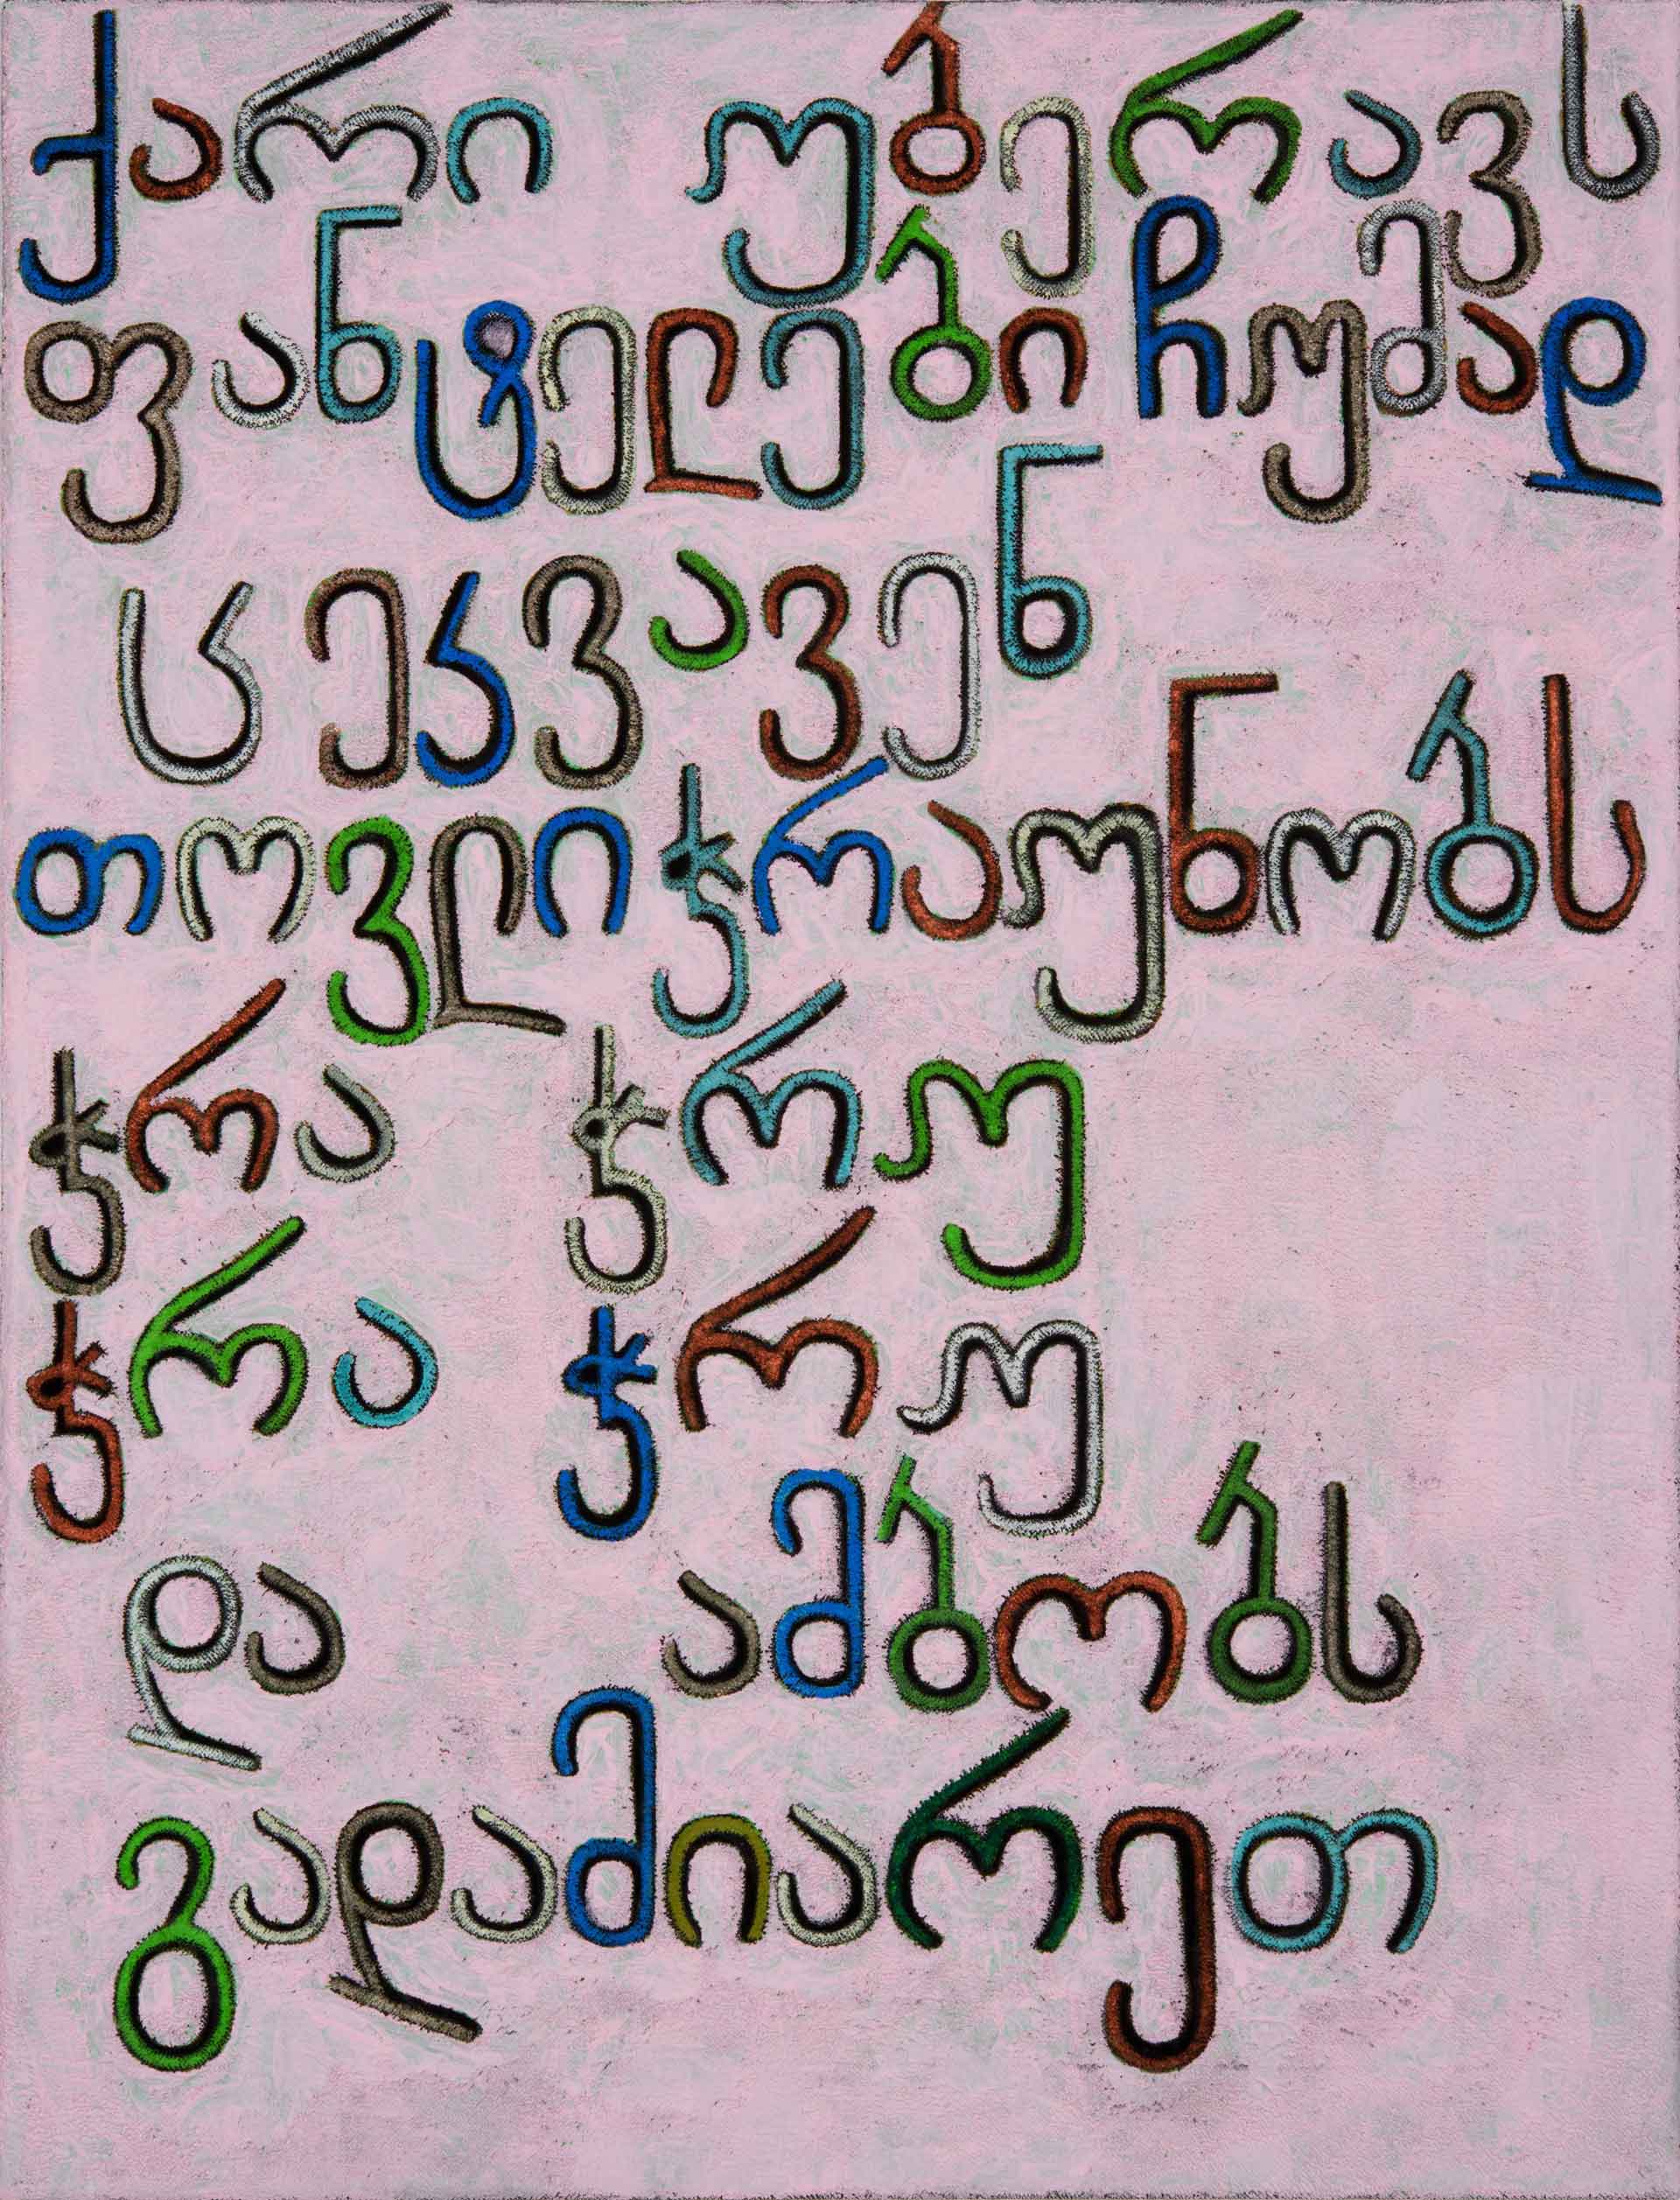 ქარი უბერავს
ფანტელები ჩუმად
ცეკვავენ
თოვლი ჭრაუნობს
ჭრა ჭრუ
ჭრა ჭრუ
და ამბობს
გადამიარეთ